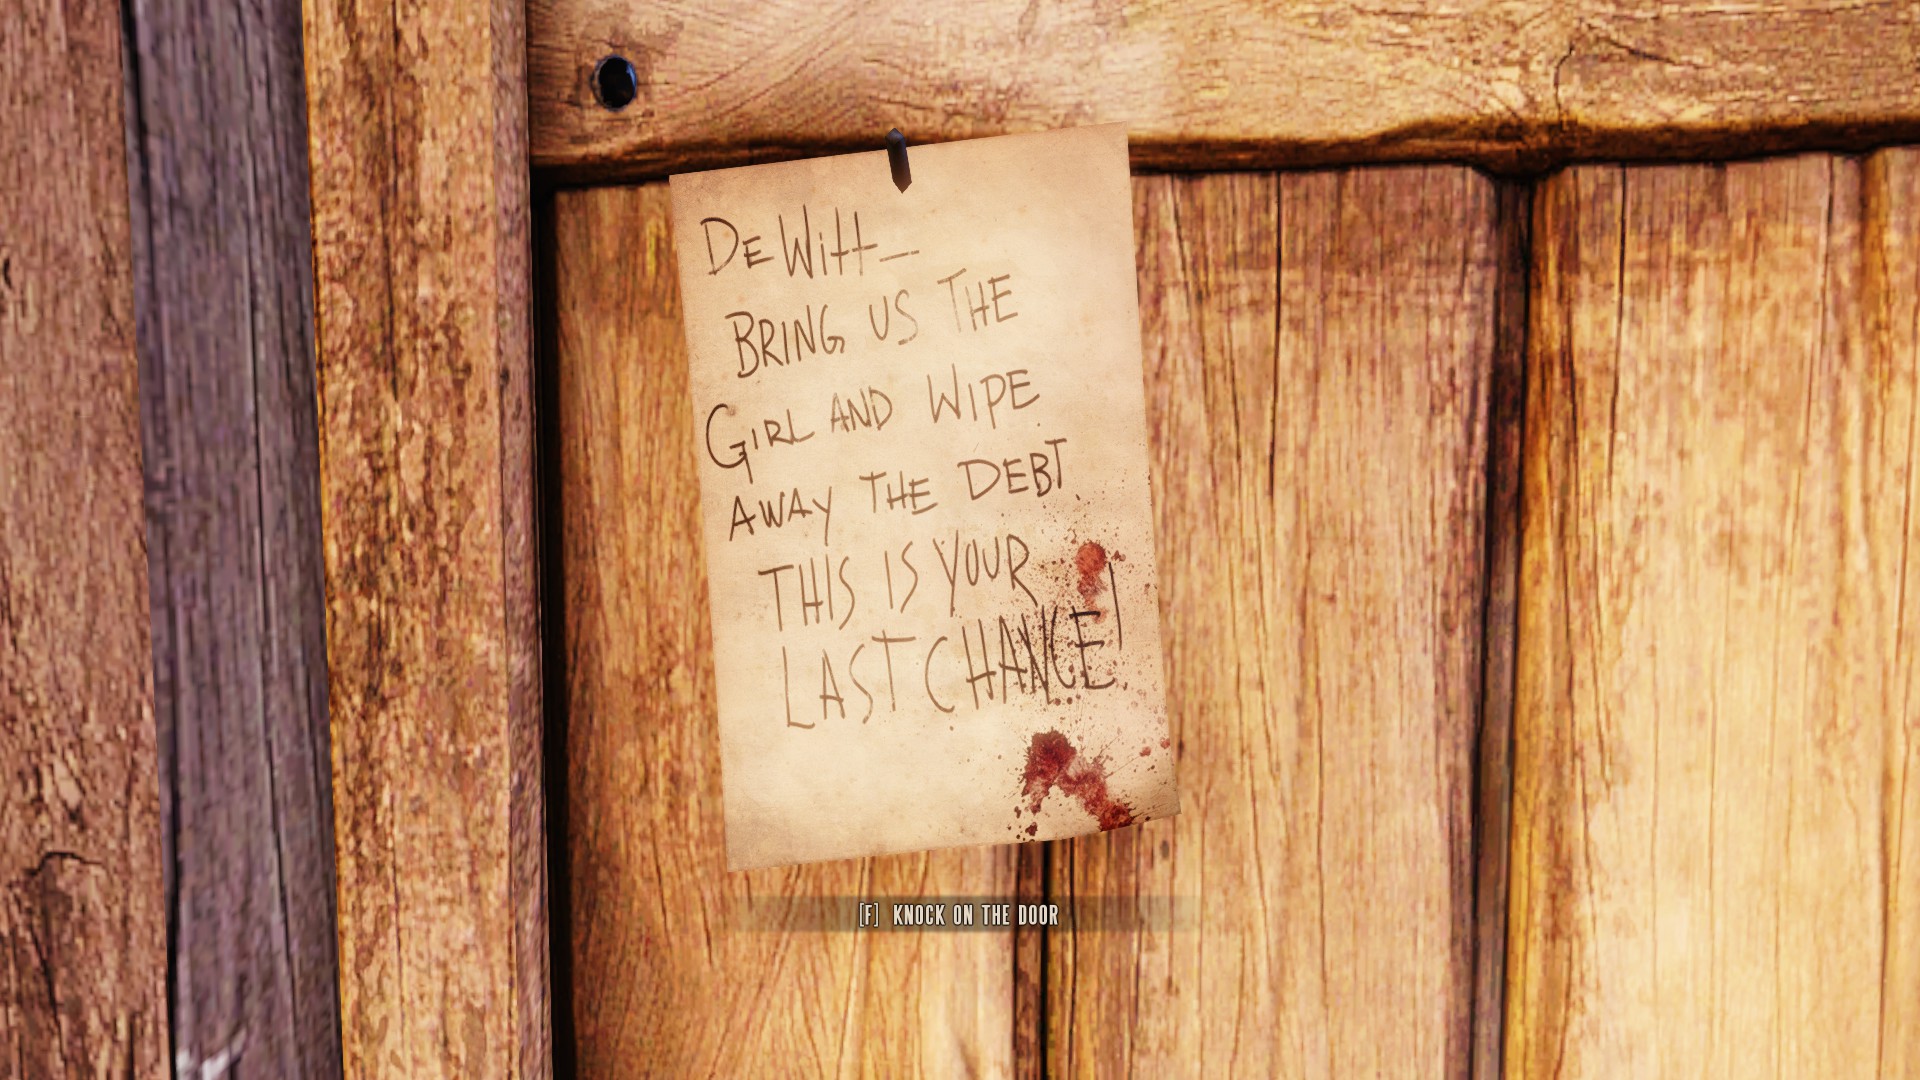 DeWitt—
BRING US THE
GIRL AND WIPE
AWAY THE DEBT
THIS IS YOUR
LAST CHANCE!
[F] KNOCK ON THE DOOR